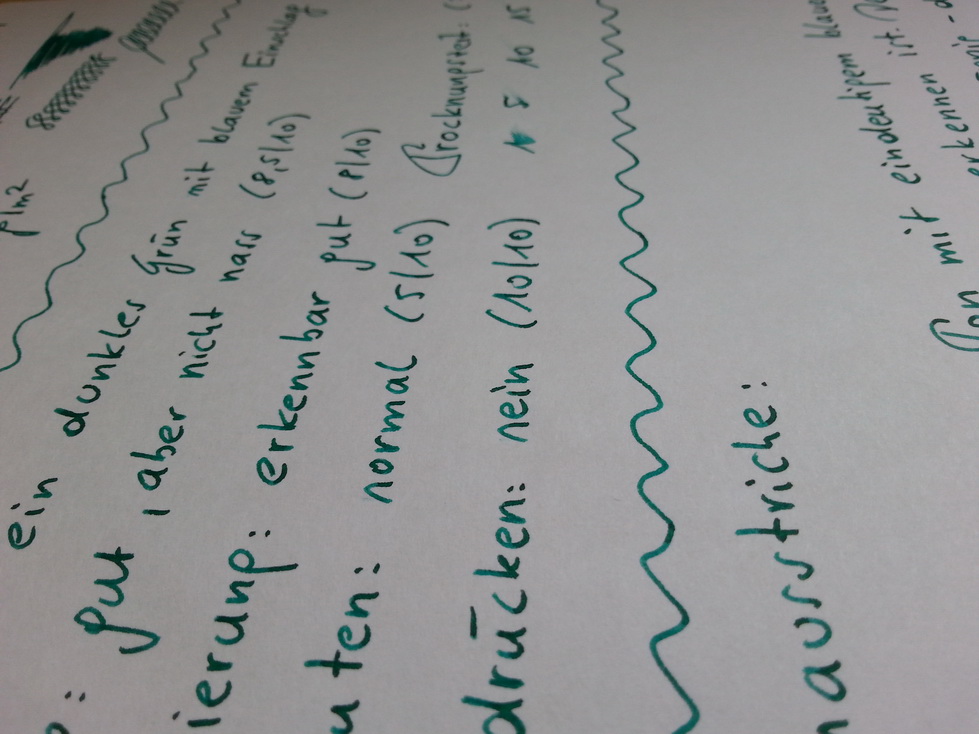 g/m²
ein dunkles Grün mit blauem Einschlag
: gut, aber nicht nass (8,5/10)
ierung: erkennbar gut (8/10)
uten: normal (5/10)
drücken: nein (10/10)
Trocknungstest: (
5 10 15
aursstriche:
mit eindeutigem blauem
erkennen ist.